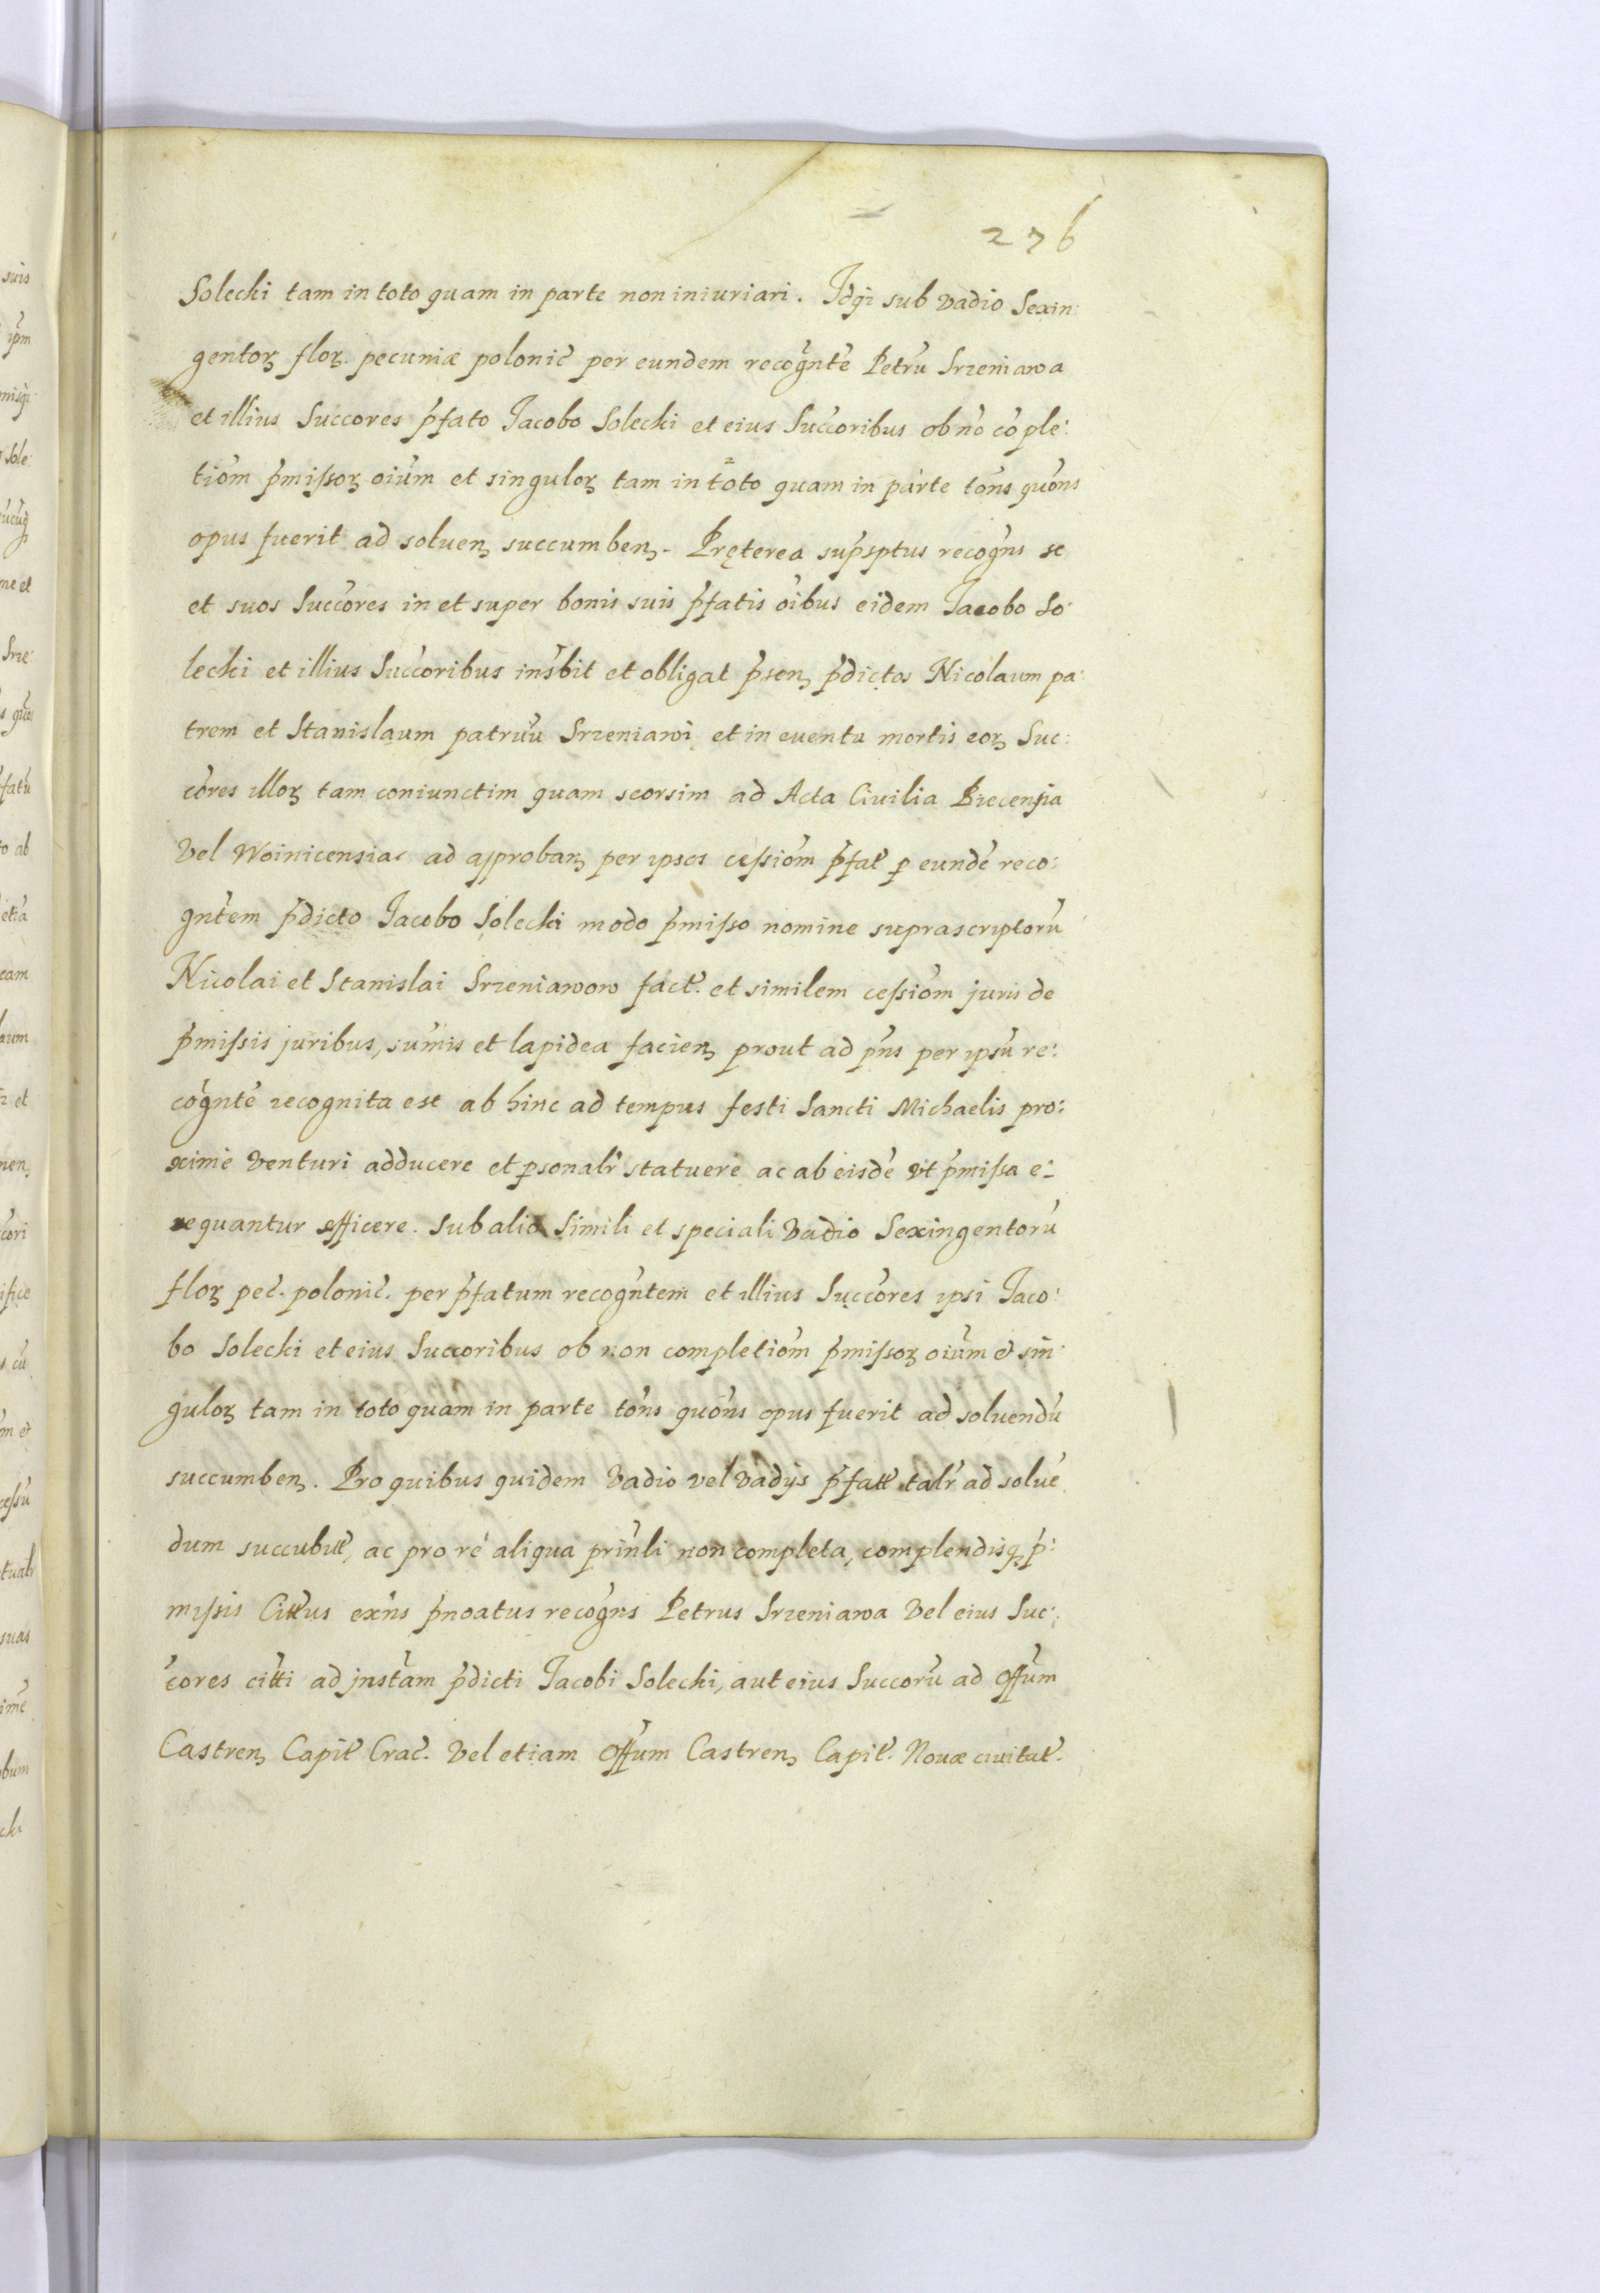 276
Solecki tam in toto quam in parte non iniuriari. Idqꝫ sub vadio Sexin:
gentoꝝ floꝝ. pecuniæ polonic̃ per eundem recog̃ntẽ Petrũ Srzeniawa
et illius Succores p̃fato Jacobo Solecki et eius Succ̃oribus ob nõ cõple:
tiõm p̃missoꝝ oiũm et singuloꝝ tam in toto quam in parte tõns quõns
opus fuerit ad soluenꝫ succumbenꝫ. Pręterea sup̃sptus recog̃ns se
et suos Succ̃ores in et super bonis suis p̃fatis oĩbus eidem Jacobo So:
lecki et illius Succ̃oribus ins̃bit et obligat p̃senꝫ p̃dictos Nicolaum pa:
trem et Stanislaum patruũ Srzeniawi et in euentu mortis eoꝝ Suc:
c̃ores illoꝝ tam coniunctim quam seorsim ad Acta Ciuilia Biecensia
vel Woinicensiac ad approbanꝫ per ipsos cessiõm p̃fat̃ ꝑ eundẽ reco:
gnt̃em p̃dicto Jacobo Solecki modo p̃misso nomine suprascriptorũ
Nicolai et Stanislai Srzeniawow fact̃. et similem cessiõm juris de
p̃missis juribus, sum̃is et lapidea facienꝫ prout ad p̃ns per ipsũ re:
cog̃ntẽ recognita est ab hinc ad tempus festi Sancti Michaelis pro:
xime venturi adducere et ꝑsonalr̃ statuere ac ab eisdẽ vt p̃missa e:
xequantur efficere. Sub alio Simili et speciali vadio Sexingentorũ
floꝝ pec̃. polonic̃. per p̃fatum recog̃ntem et illius Succ̃ores ipsi Jaco:
bo Solecki et eius Succoribus ob non completiõm p̃missoꝝ oiũm et sin:
guloꝝ tam in toto quam in parte tõns quõns opus fuerit ad soluendũ
succumbenꝫ. Pro quibus quidem vadio vel vadijs p̃fatt̃ talr̃ ad soluẽ
dum succubitt̃, ac pro re aliqua prin̄li non completa, complendisqꝫ p̃:
missis Citt̃us ex̃ns p̃noatus recog̃ns Petrus Srzeniawa vel eius Suc:
c̃ores citt̃i ad jnst̃am p̃dicti Jacobi Solecki, aut eius Succorũ ad Off̃um
Castrenꝫ Capit̃ Crac̃. vel etiam Off̃um Castrenꝫ Capit̃. Nouæ ciuitat̃.